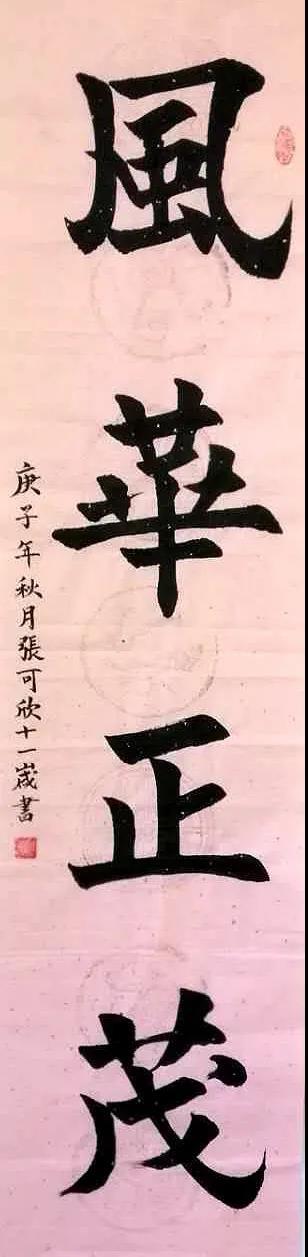 風華正茂
庚子年秋月張可欣十一歲書